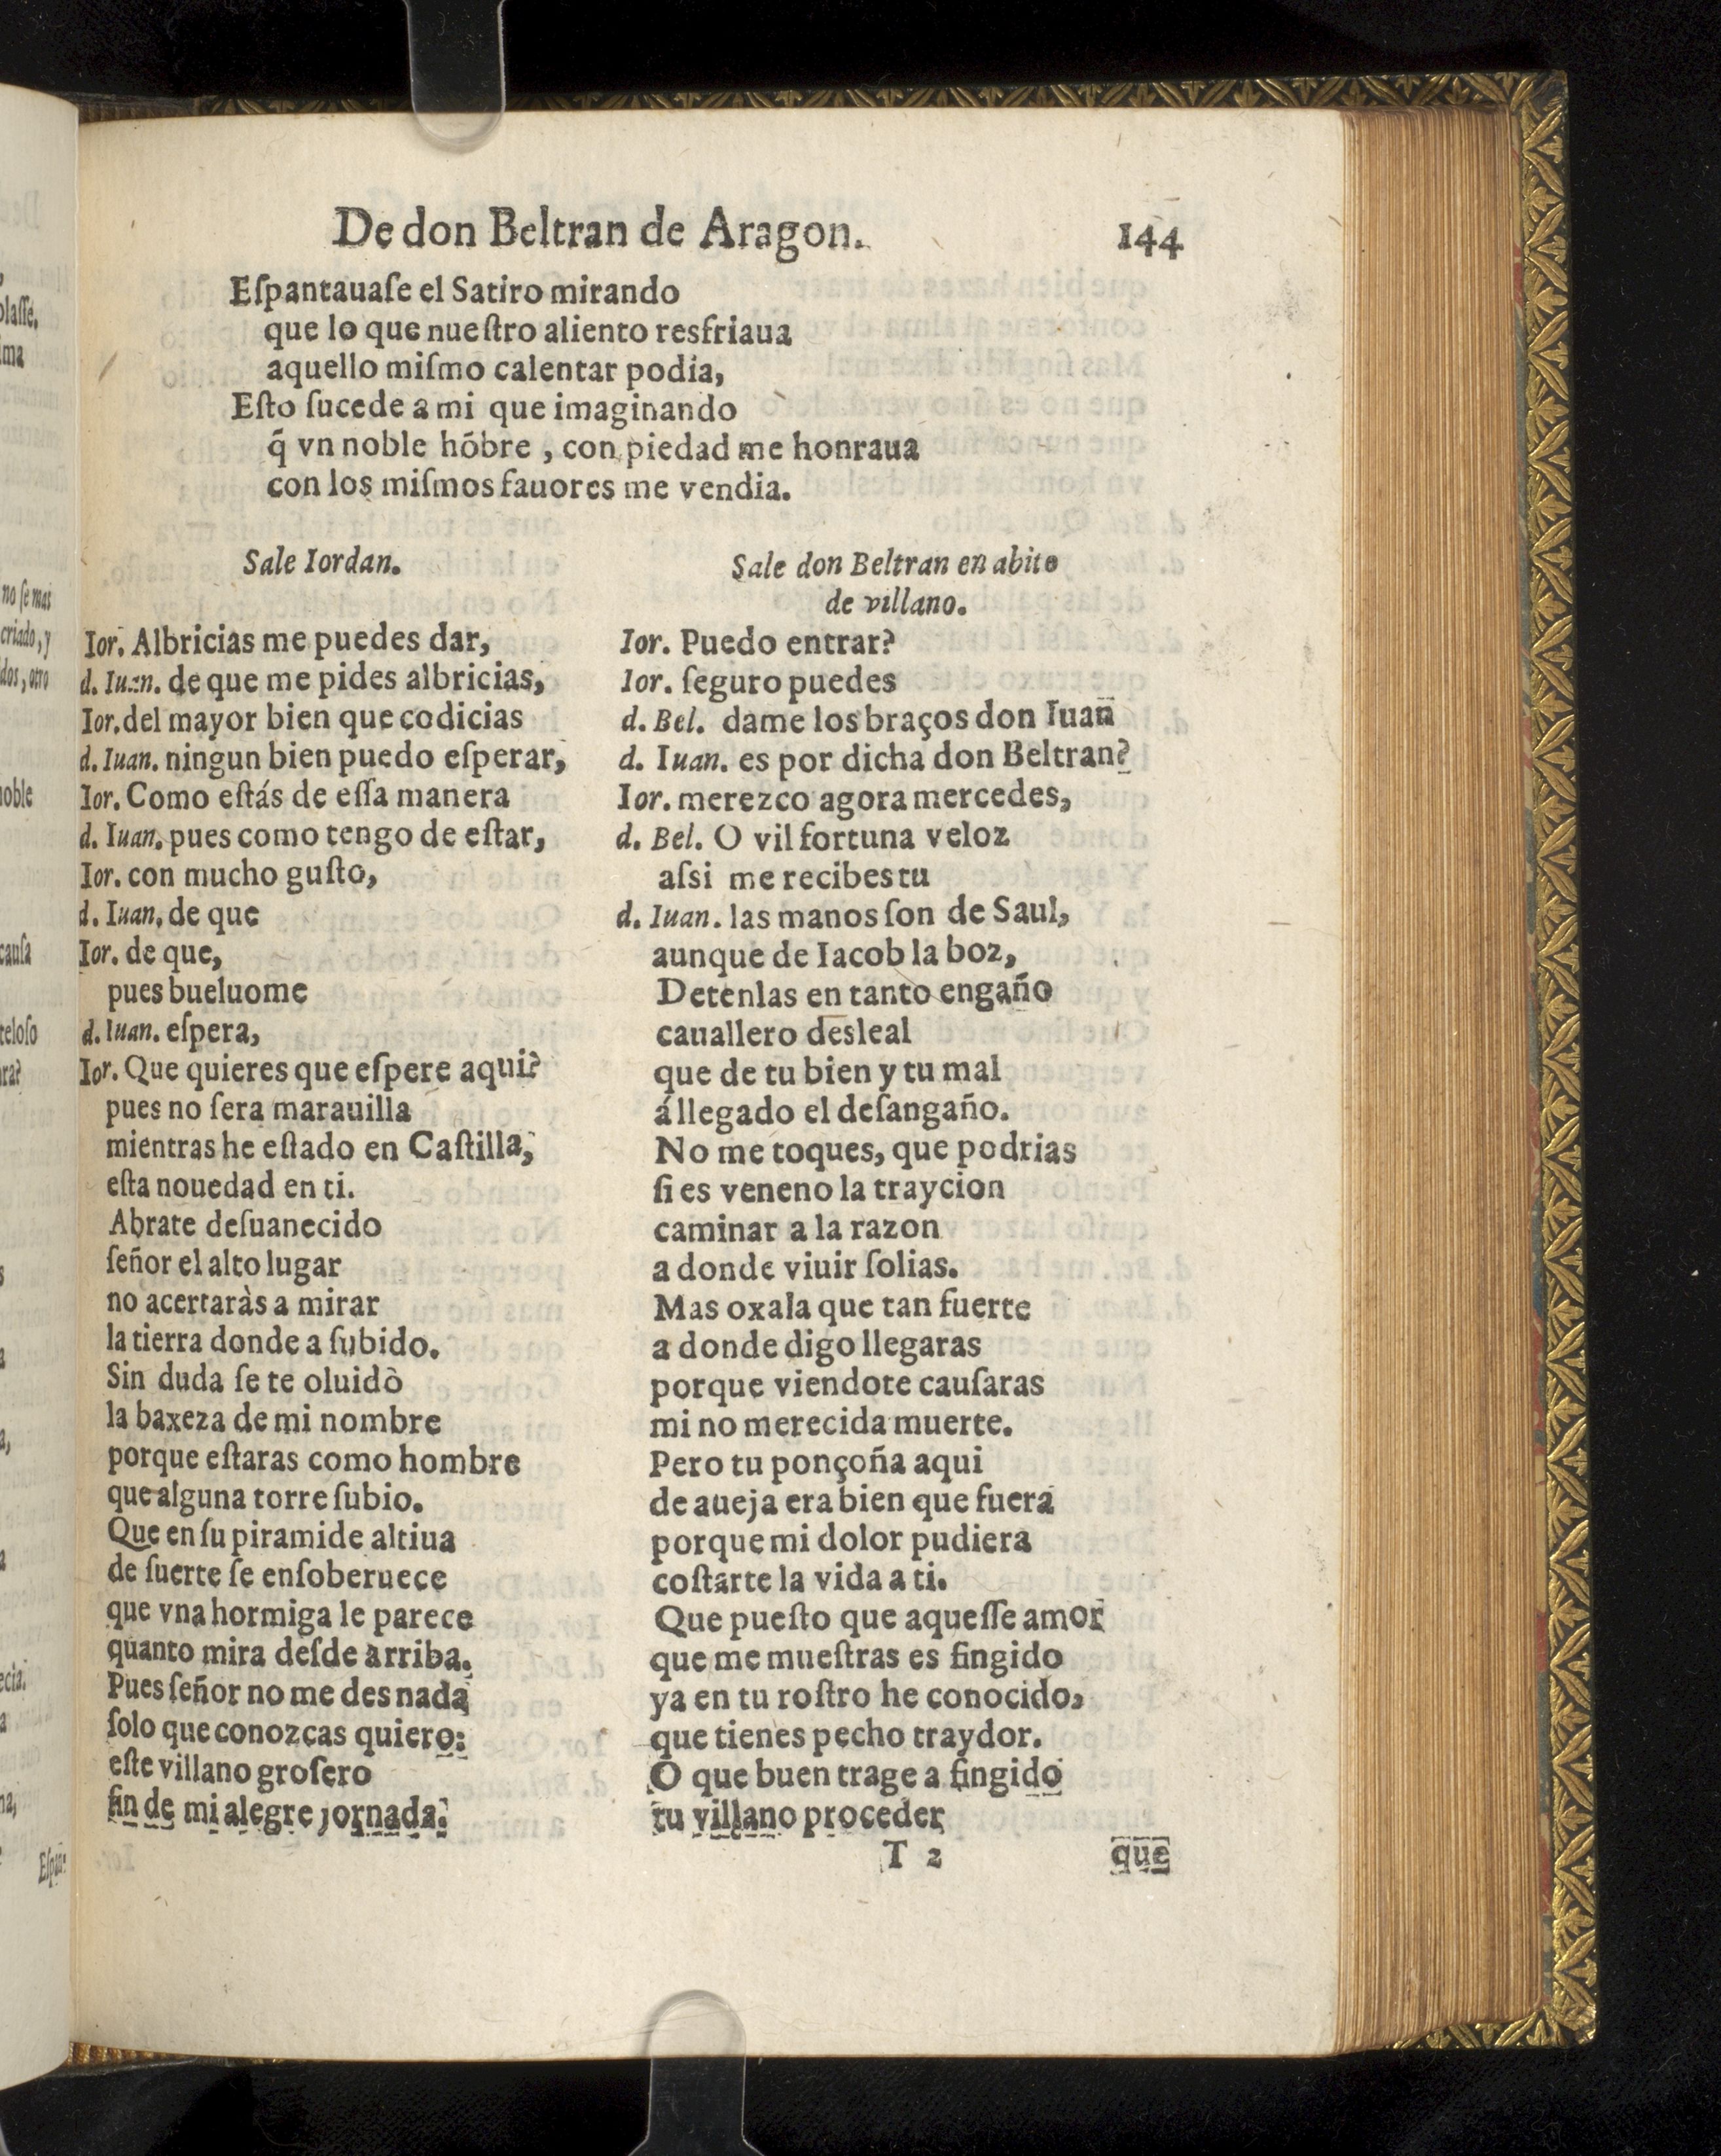 De don Beltran de Aragon. 144
Eſpantauaſe el Satiro mirando
que lo que nueſtro aliento resfriaua
aquello miſmo calentar podia,
Eſto ſucede a mi que imaginando
q̃ vn noble hõbre, con piedad me honraua
con los miſmos fauores me vendia.
Sale Iordan.
Ior. Albricias me puedes dar,
d. Iuan. de que me pides albricias,
Ior. del mayor bien que codicias
d. Iuan. ningun bien puedo eſperar,
Ior. Como eſtás de eſſa manera
d. Iuan. pues como tengo de eſtar,
Ior. con mucho guſto,
d. Iuan. de que
Ior. de que,
pues bueluome
d. Iuan. eſpera,
Ior. Que quieres que eſpere aqui?
pues no ſera marauilla
mientras he eſtado en Caſtilla,
eſta nouedad en ti.
Abrate deſuanecido
ſeñor el alto lugar
no acertaràs a mirar
la tierra donde a ſubido.
Sin duda ſe te oluidò
la baxeza de mi nombre
porque eſtaras como hombre
que alguna torre ſubio.
Que en ſu piramide altiua
de ſuerte ſe enſoberuece
que vna hormiga le parece
quanto mira deſde arriba.
Pues ſeñor no me des nada
ſolo que conozcas quiero:
eſte villano groſero
fin de mi alegre jornada.
Sale don Beltran en abito
de villano.
Ior. Puedo entrar?
Ior. ſeguro puedes
d. Bel. dame los braços don Iuan
d. Iuan. es por dicha don Beltran?
Ior. merezco agora mercedes,
d. Bel. O vil fortuna veloz
aſsi me recibes tu
d. Iuan. las manos ſon de Saul,
aunque de Iacob la boz,
Detenlas en tanto engaño
cauallero desleal
que de tu bien y tu mal
á llegado el deſangaño.
No me toques, que podrias
ſi es veneno la traycion
caminar a la razon
a donde viuir ſolias.
Mas oxala que tan fuerte
a donde digo llegaras
porque viendote cauſaras
mi no merecida muerte.
Pero tu ponçoña aqui
de aueja era bien que fuera
porque mi dolor pudiera
coſtarte la vida a ti.
Que pueſto que aqueſſe amor
que me mueſtras es fingido
ya en tu roſtro he conocido,
que tienes pecho traydor.
O que buen trage a fingido
tu villano proceder
T 2 que